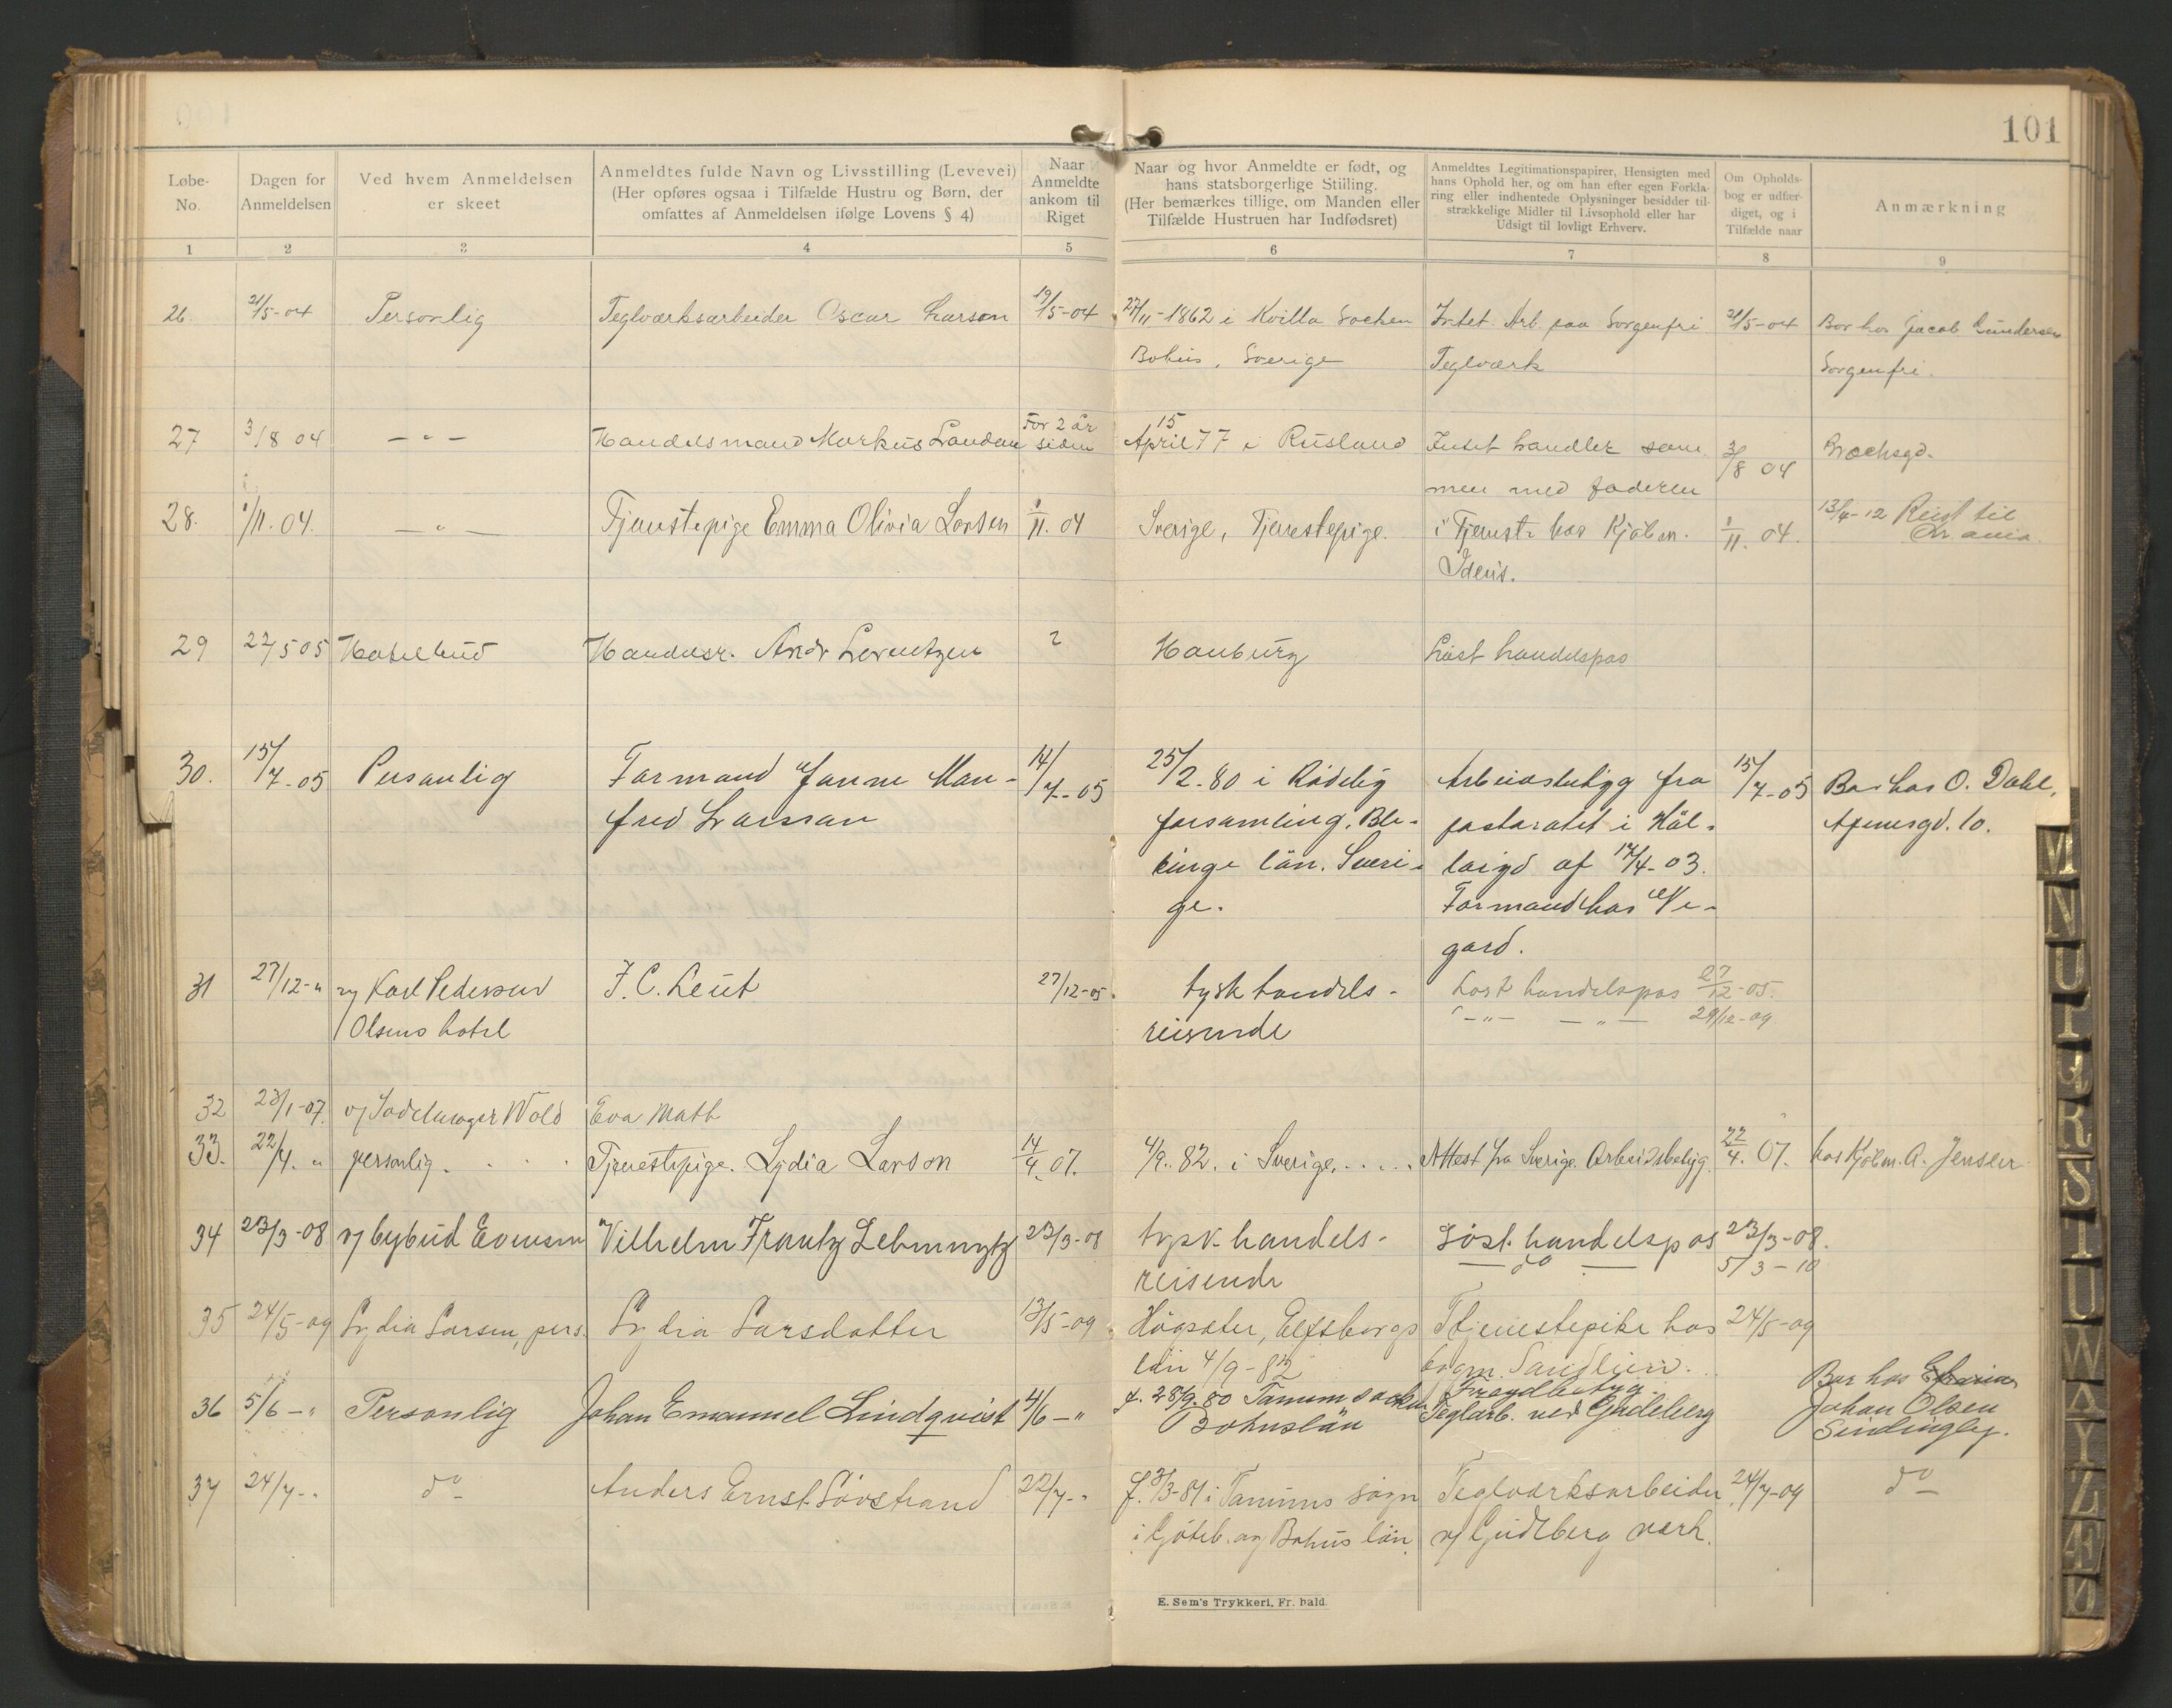 101
Løbe-
No.
Dagen for
Anmeldelsen
Ved hvem Anmeldelsen
er skeet
Anmeldtes fulde Navn og Livsstilling (Levevei)
(Her opføres ogsaa i Tilfælde Hustru og Børn, der
omfattes af Anmeldelsen ifølge Lovens § 4)
Naar
Anmeldte
ankom til
Riget
Naar og hvor Anmeldte er født, og
hans statsborgerlige Stilling.
(Her bemærkes tillige, om Manden eller
Tilfælde Hustruen har Indfødsret)
Anmeldtes Legitimationspapirer, Hensigten med
hans Ophold her, og om han efter egen Forkla-
ring eller indhentede Oplysninger besidder til-
strækkelige Midler til Livsophold eller har
Udsigt til lovligt Erhverv.
Om Opholds-
bog er udfær-
diget, og i
Tilfælde naar
Anmærkning
1 2 3 4 5 6 7 8 9
26. 21/5-04 Personlig Teglværksarbeider Oscar Larson 19/5-04 27/11-1862 i Kville Socken Intet. Arb. paa Sorgenfri 21/5-04 Bor hos Jacob Gundersen
Bohus, Sverige Teglværk Sorgenfri.
For 2 år 15
27 3/8 04 — " — Handelsmand Markus Landau siden April 77 i Rusland Intet handler sam 3/8 04 Brochsgd.
men med faderen
28. 1/11. 04. — " — Tjenestepige Emma Olivia Larsen 1/11. 04 Sverige, Tjenestepige. i Tjenest hos Kjøbm. 1/11. 04. 13/4-12 Reist til
Idens. Kr.ania.
29 22/5 05 Hotelbud Handelsr. Andr Lorentzen ? Hamburg Løst handelspas
30. 15/7-05 Personlig Formand Janne Man- 14/7-05 25/2-80 i Rödeby Arbeidsbetyg fra 15/7-05 Bor hos O. Dahl,
fred Larsson forsamling. Ble- pastoratet i Häl- Agenesgd. 10.
kinge län. Sveri- af 14/4-03.
ge. Formand hos Ve-
gard.
31 27/12-" v/ Karl Pedersen J. C. Leut 27/12-05 tysk handels- Løst handelspas 27/12-05.
Olsens hotel reisende — " — — " — 29/12-09
32 23/1-07. v/ Sadelmager Wold Eva Math
33. 22/4. " personlig. . . . Tjenestepige. Lydia Larson 14/4. 07. 4/9. 82. i Sverige. . . . . Attest fra Sverige. Arbeidsbetyg. 22/4. 07. hos Kjøbm. A. Jensen
34 23/3-08 v/ bybud Evensen Vilhelm Frantz 23/3-08 tysk handels- Løst. handelspas 23/3-08.
reisende — do — 5/3-10
35 24/5-09 Lydia Larsen, pers. Lydia Larsdatter 13/5-09 Högsäter, Elfsborgs Tjenestepike hos 24/5-09
län 4/9-82 bagm. Sandlien.
36 5/6-" Personlig Johan Emanuel Lindqvist 4/6-" f. 28/9. 80 Tanum socken Frejdbetyg. Bor hos
Bohuslän Teglarb. ved Gudeberg Johan Olsen
Sindingby.
37 24/7-" do Anders Ernst Lövstrand 22/7-" f. 3/3-81 i Tanums sogn Teglværksarbeider 24/7-09 do
i Göteb. og Bohus län. v/ Gudeberg værk.
E. Sem's Trykkeri, Fr. hald.
M
N
O
P
Q
R
S
T
U
W
A
Y
Z
Æ
Ø